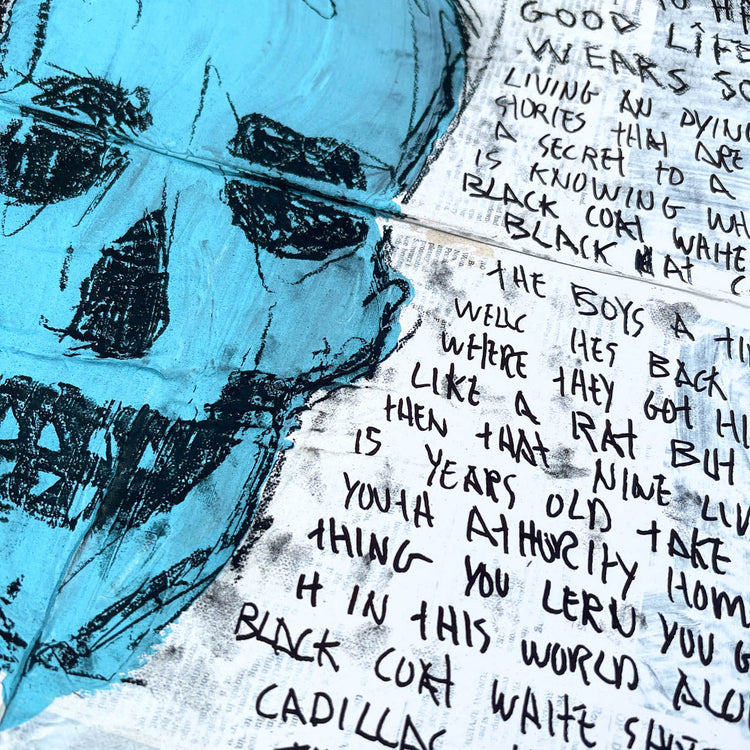 GOOD LIFE
WEARS
LIVING AN DYING
STORIES THAT ARE
A SECRET TO A
IS KNOWING
BLACK COAT WHITE
BLACK HAT
THE BOYS A
WELL HES BACK
WHERE THEY GOT
LIKE A RAT BUT
THEN THAT NINE
15 YEARS OLD TAKE
YOUTH ATHURITY
THING YOU LERN YOU
IN THIS WORLD
BLACK COAT WHITE
CADILLAC